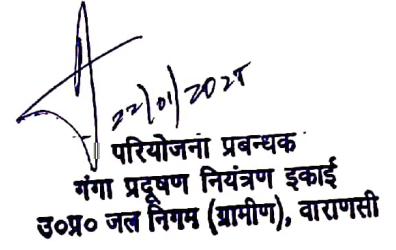 22/01/2025
परियोजना प्रबन्धक
गंगा प्रदूषण नियंत्रण इकाई
उ०प्र० जल निगम (ग्रामीण), वाराणसी